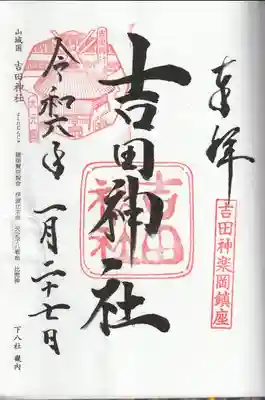 奉拝
吉田神楽岡鎮座
吉田神社
吉田
神社
令和六年 一月二十七日
山城国 吉田神社
下八社 畿内